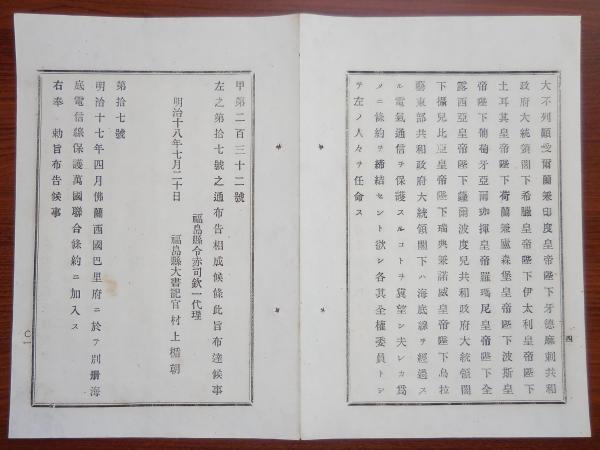 四
大不列顚愛爾蘭兼印度皇帝陛下牙德麻剌共和
政府大統領閣下希臘皇帝陛下伊太利皇帝陛下
土耳其皇帝陛下荷蘭兼盧森堡皇帝陛下波斯皇
帝陛下葡萄牙亞爾珈揮皇帝羅瑪尼皇帝陛下全
露西亞皇帝陛下薩爾波度兒共和政府大統領閣
下攝兒比亞皇帝陛下瑞典兼諾威皇帝陛下烏拉
藝東部共和政府大統領閣下ハ海底線ヲ經過ス
ル電氣通信ヲ保護スルコトヲ冀望シ夫レカ爲
メニ條約ヲ締結セント欲シ各其全權委員トシ
テ左ノ人々ヲ任命ス
甲第二百三十二號
左之第拾七號之通布告相成候條此旨布達候事
福島縣令赤司欽一代理
明治十八年七月二十日 福島縣大書記官村上楯朝
第拾七號
明治十七年四月佛蘭西國巴里府ニ於テ別册海
底電信線保護萬國聯合條約ニ加入ス
右奉 勅旨布告候事